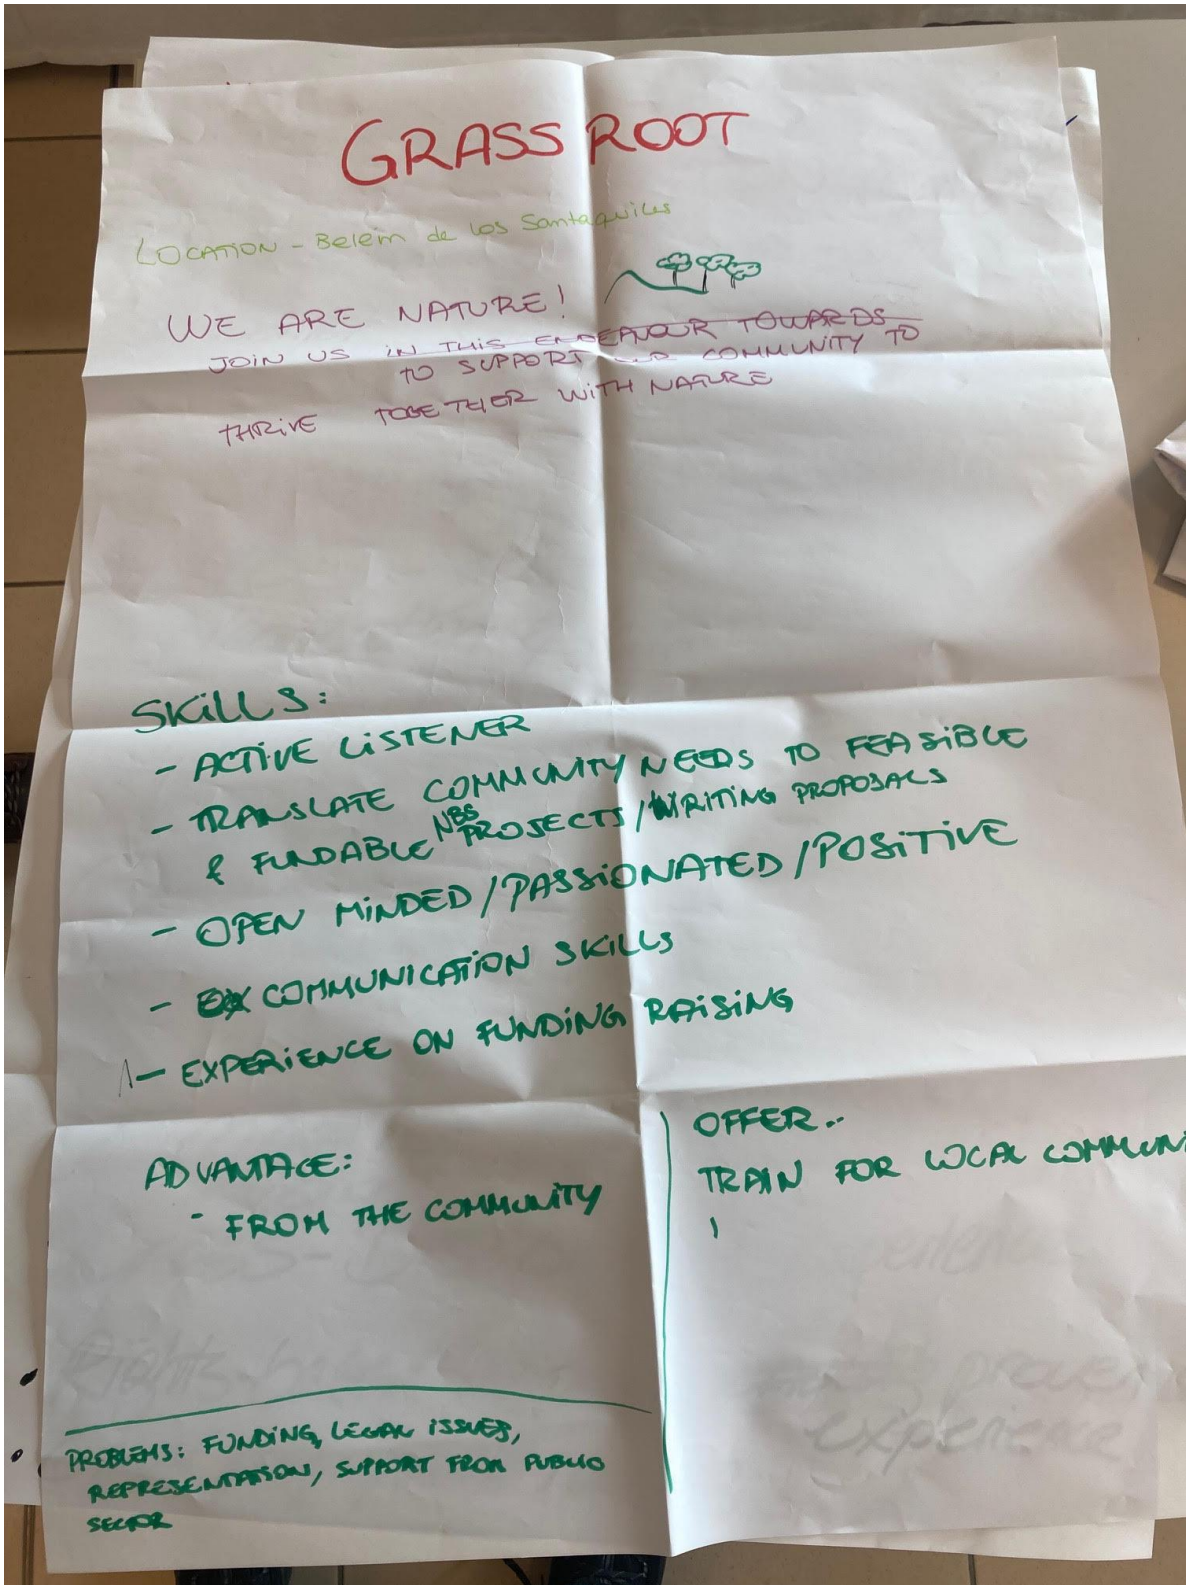 GRASS ROOT
LOCATION - Belém de los Santaquiles
WE ARE NATURE!
JOIN US in THIS ENDEAVOUR TOWARDS
TO SUPPORT OUR COMMUNITY TO
THRIVE TOGETHER WITH NATURE
SKILLS:
- ACTIVE LISTENER
- TRANSLATE COMMUNITY NEEDS TO FEASIBLE
& FUNDABLE NBS PROJECTS / WRITING PROPOSALS
- OPEN MINDED / PASSIONATED / POSITIVE
- COMMUNICATION SKILLS
- EXPERIENCE ON FUNDING RAISING
ADVANTAGE:
- FROM THE COMMUNITY
OFFER..
TRAIN FOR LOCAL COMMUNI
PROBLEMS: FUNDING, LEGAL ISSUES,
REPRESENTATION, SUPPORT FROM PUBLIC
SECTOR
experience